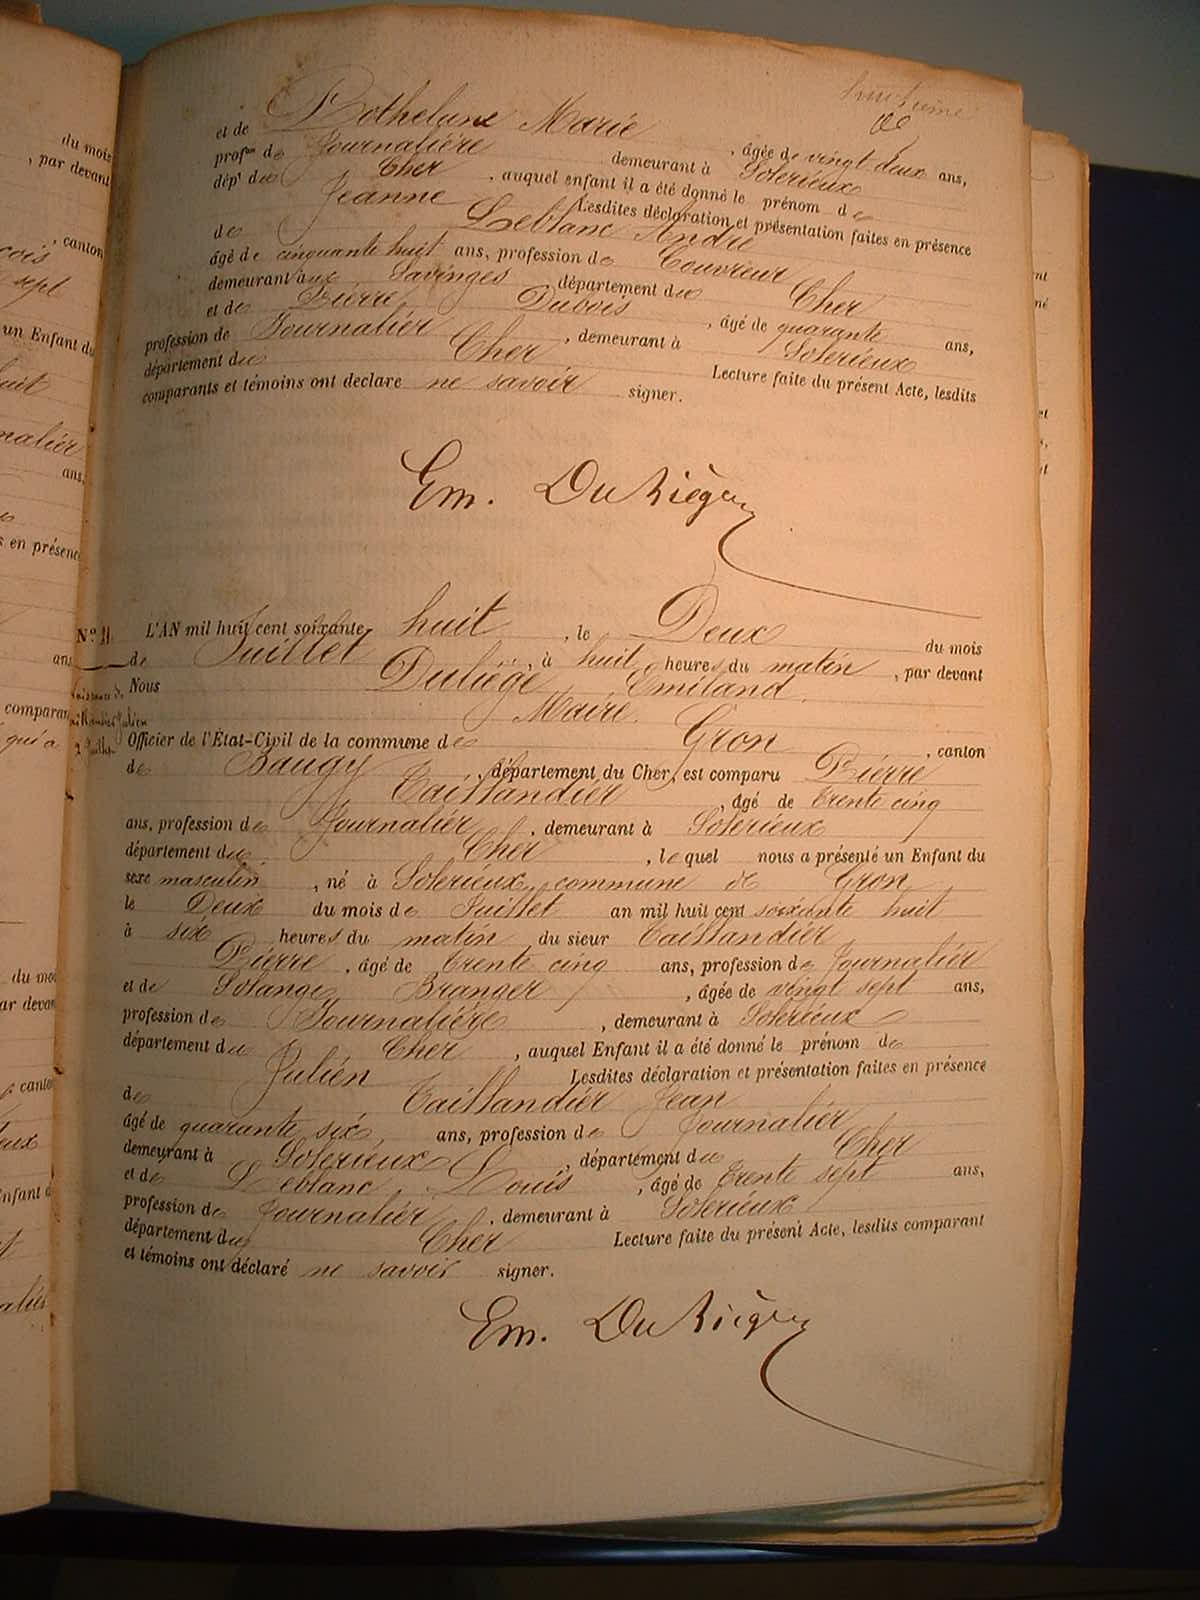 huitième
et de Bothelane Marie, âgée de vingt deux ans,
profon de Journalière demeurant à Solerieux
dépt du Cher, auquel enfant il a été donné le prénom de
Jeanne Lesdites déclaration et présentation faites en présence
de Leblanc André
âgé de cinquante huit ans, profession de Couvreur
demeurant aux Savinges département du Cher
et de Pierre Dubois, âgé de quarante ans,
profession de Journalier, demeurant à Solerieux
département du Cher Lecture faite du présent Acte, lesdits
comparants et témoins ont declare ne savoir signer.
Em. Duliège
No 11 L'AN mil huit cent soixante huit, le Deux du mois
de Juillet, à huit heures du matin, par devant
Nous Duliège Emiland
Maire
Officier de l'État-Civil de la commune de Gron, canton
de Baugy, département du Cher, est comparu Pierre
Taillandier, âgé de trente cinq
ans, profession de Journalier, demeurant à Solerieux
département du Cher, lequel nous a présenté un Enfant du
sexe masculin, né à Solerieux commune de Gron
le Deux du mois de Juillet an mil huit cent soixante huit
à six heures du matin du sieur Taillandier
Pierre, âgé de trente cinq ans, profession de Journalier
et de Solange Branger, âgée de vingt sept ans,
profession de Journalière, demeurant à Solerieux
département du Cher, auquel Enfant il a été donné le prénom de
Julien Lesdites déclaration et présentation faites en présence
de Taillandier Jean
âgé de quarante six ans, profession de Journalier
demeurant à Solerieux, département du Cher
et de Leblanc, Louis, âgé de trente sept ans,
profession de Journalier, demeurant à Solerieux
département du Cher Lecture faite du présent Acte, lesdits comparant
et témoins ont déclaré ne savoir signer.
Em. Duliège
du mois
, par devant
, canton
sept
un Enfant du
huit
ans,
en présence
ans
comparan
qui a
du moi
par devan
canto
Enfant d